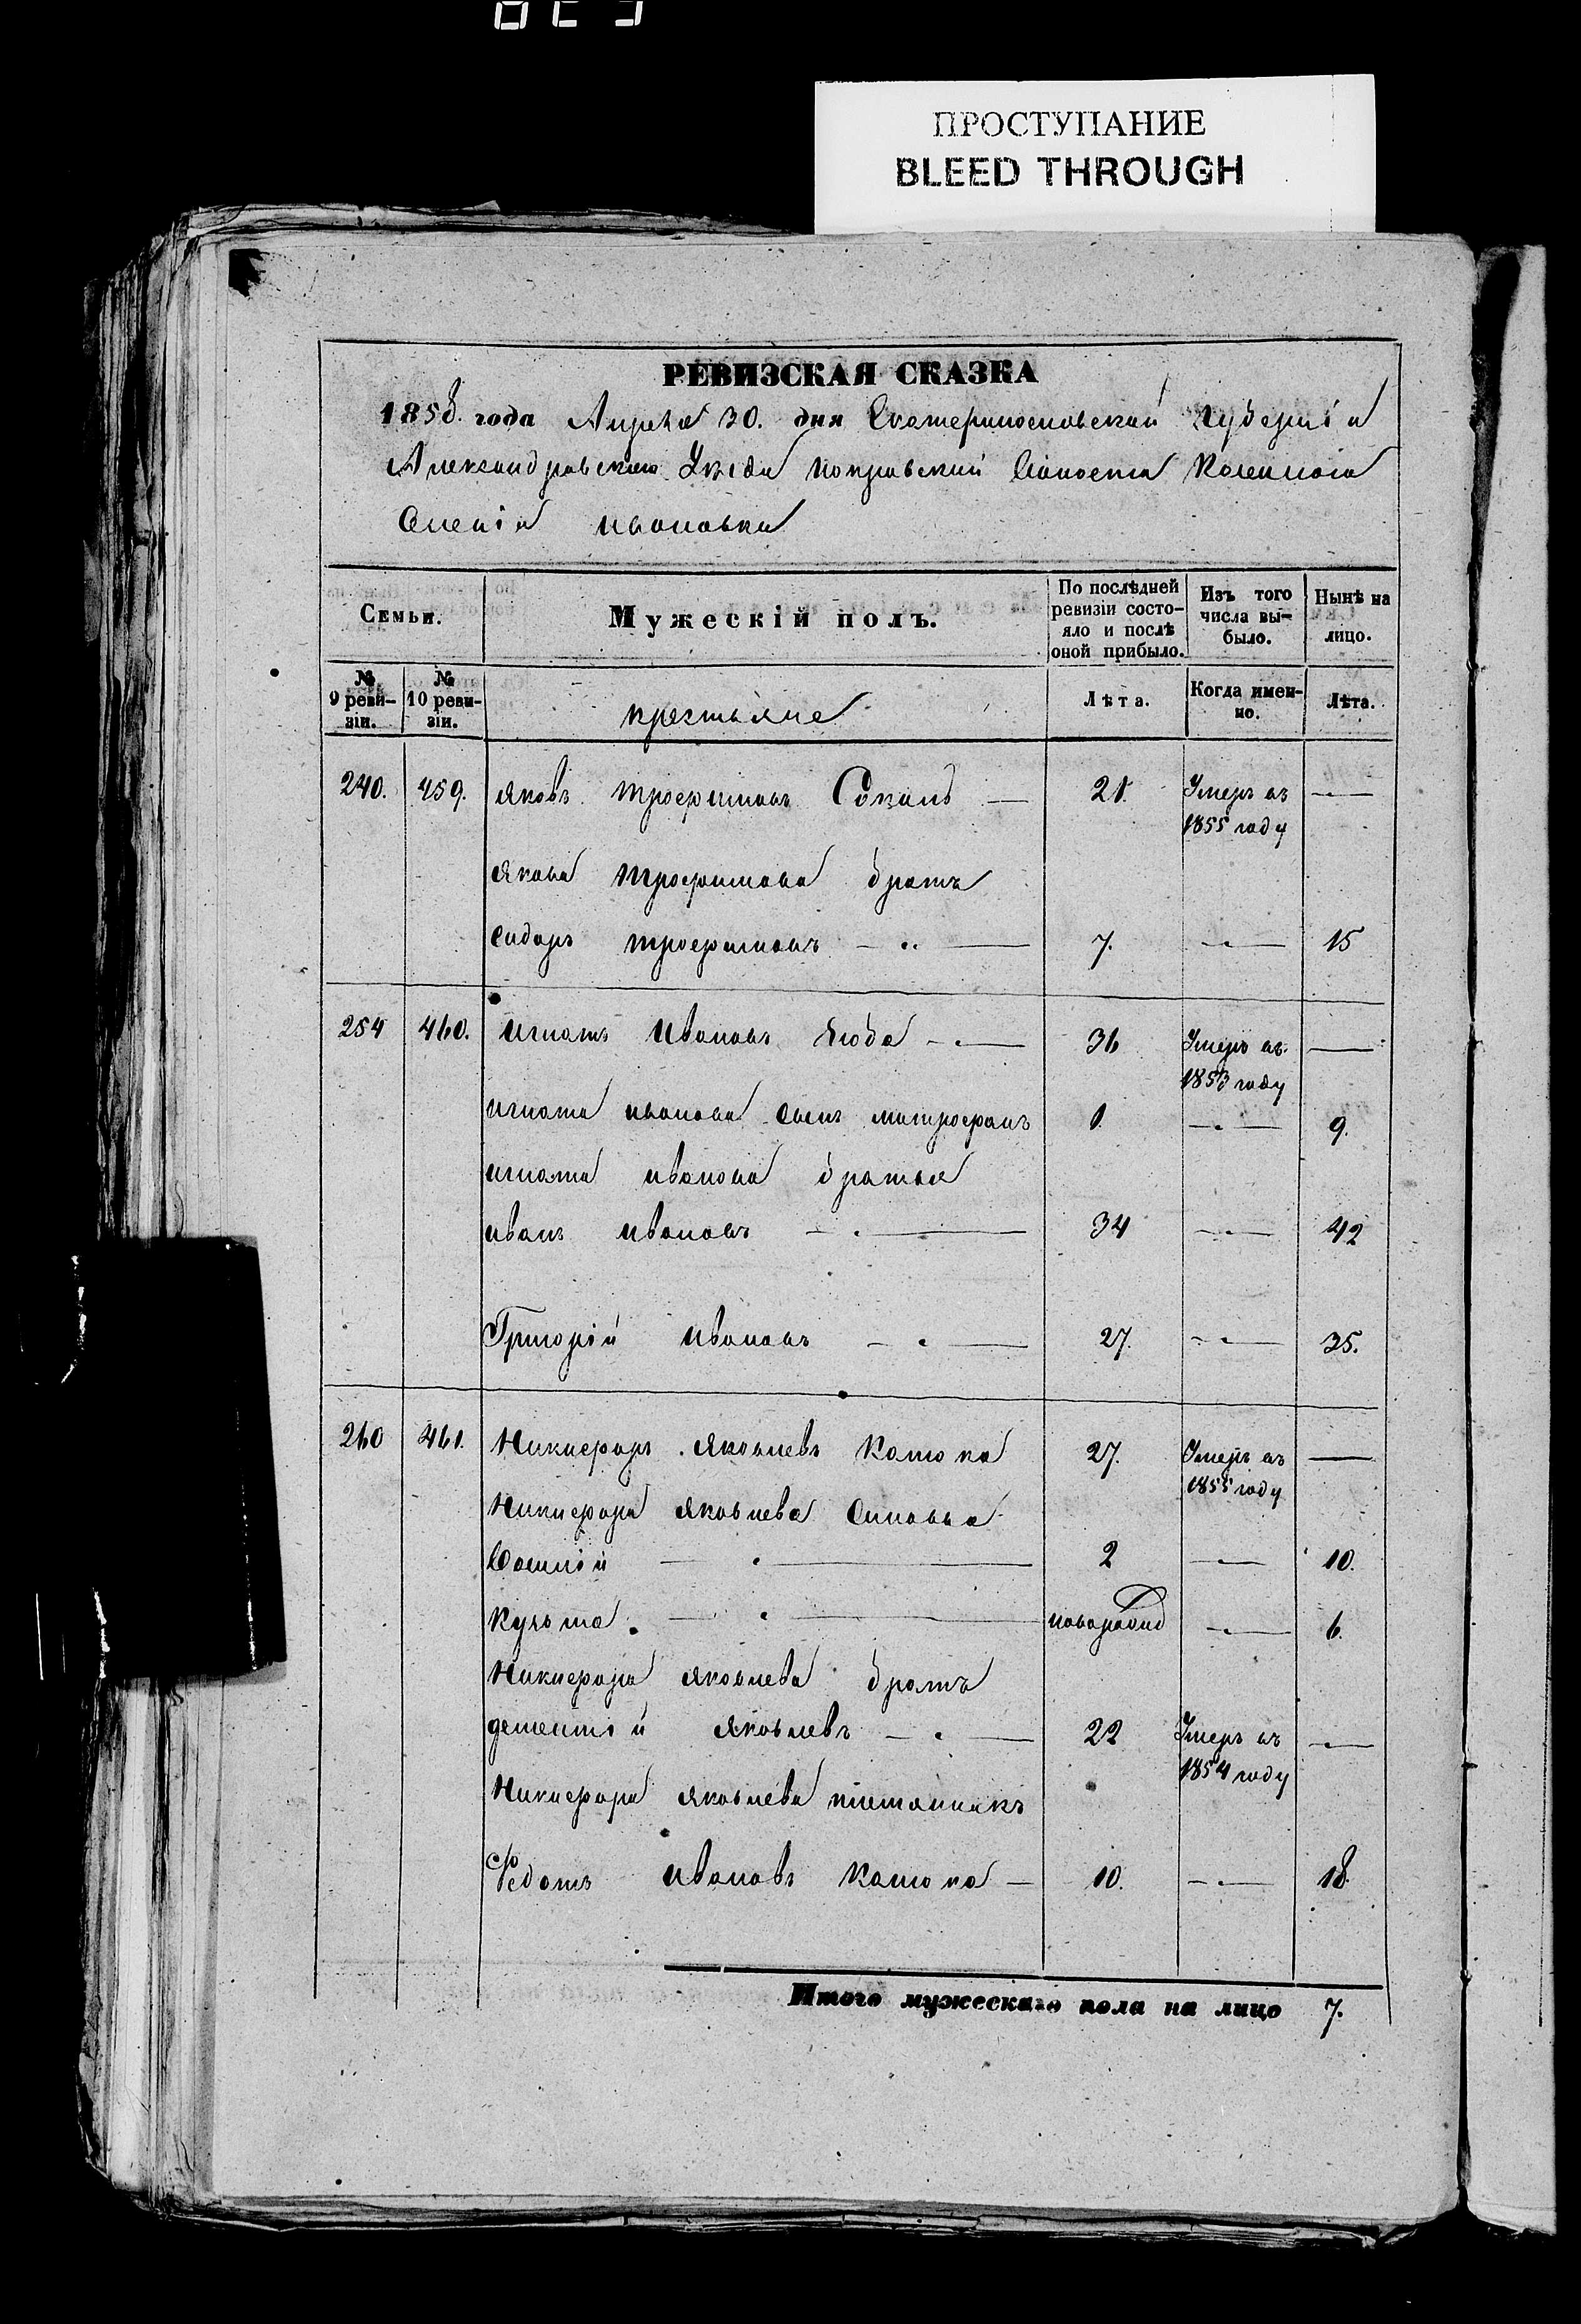 ПРОСТУПАНИЕ
BLEED THROUGH
РЕВИЗСКАЯ СКАЗКА
1858. года Апреля 30. дня Екатеринославской Губерніи
Александровскаго Уезда Покровской Волости Казеннаго
Селенія Ивановки
Семьи.
Мужескій полъ.
По послѣдней ревизіи состо-
яло и послѣ оной прибыло.
Изъ того числа вы-
было.
Нынѣ на лицо.
№ 9 реви-
зіи.
№ 10 реви-
зіи.
крестьяне
Лѣта.
Когда имен-
но.
Лѣта.
240. 459. Яковъ Трофимовъ Соколъ — 21. Умеръ въ —
1855 году
Якова Трофимова братъ
Сидоръ Трофимовъ — 7. — 15
254 460. Игнатъ Ивановъ — 36 Умеръ въ —
1853 году
Игната Иванова сынъ Митрофанъ 1. — 9.
Игната Иванова братья
Иванъ Ивановъ — 34 — 42
Григорій Ивановъ — 27. — 35.
260 461. Никифоръ Яковлевъ 27. Умеръ въ —
1855 году
Никифора Яковлева Синовья
Василій — 2 — 10.
Кузьма — новорожд — 6.
Никифора Яковлева братъ
Дементій Яковлевъ — 22 Умеръ въ —
1854 году
Никифора Яковлева племянникъ
Федотъ Ивановъ — 10. — 18.
Итого мужескаго пола на лицо 7.